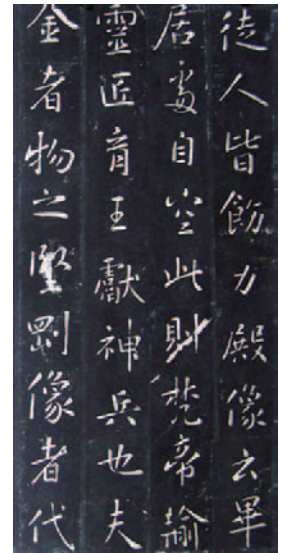 徒人皆飭力殿像云畢
居處自空此則梵帝輸
靈匠育王獻神兵也夫
金者物之堅剛像者代